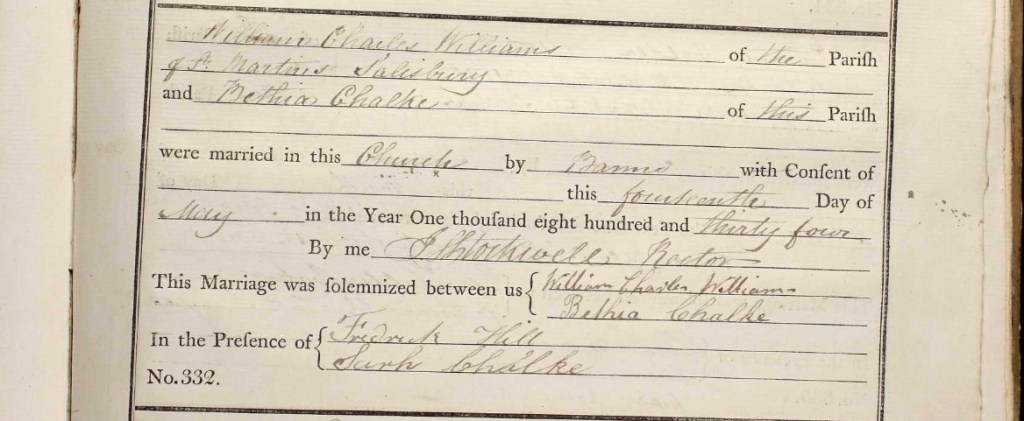 William Charles Williams of the Pariſh
of St. Martins Salisbury
and Bethia Chalke of this Pariſh
were married in this Church by Banns with Conſent of
this fourteenth Day of
May in the Year One thouſand eight hundred and thirty four
By me Rector
This Marriage was ſolemnized between us { William Charles Williams
Bethia Chalke
In the Preſence of { Fredrick Hill
Sarh Chalke
No. 332.